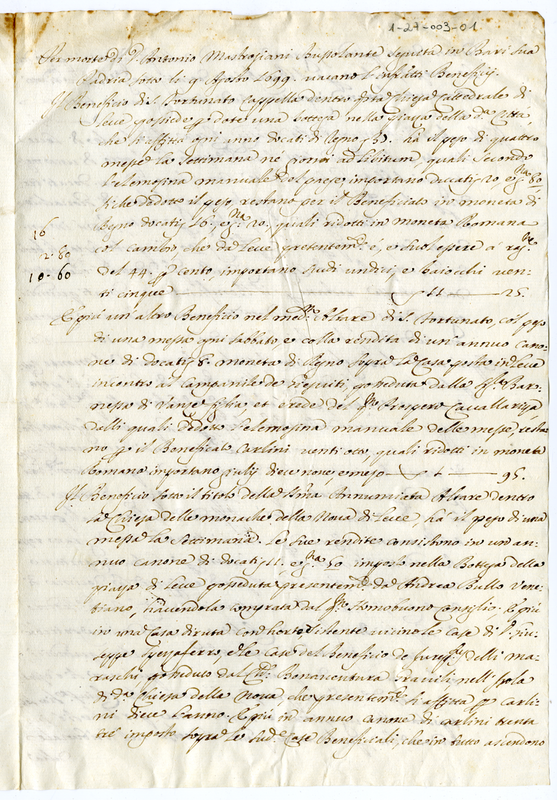 1-27-003-01
Per morte di D. Antonio Mastrogiani Bussolante seguita in Bari sua
Padria sotto li 9 Agosto 1699. vacano l'infratti Beneficij.
Il Beneficio di S. Fortunato Cappella dentro Chiesa Cattedrale di
Lecce possiede p. dote una bottega nella piazza della d.a Città,
che s'affitta ogni anno docati di Regno 35. hà il peso di quattro
messe la settimana nè corsi ad libitum, quali secondo
l'elemosina manuale del paese importano ducati 20,
si che dedotto il peso, restano per il Beneficiato in moneta di
Regno docati 16: 20, quali ridotti in moneta Romana
16
col cambio, che da Lecce presentem.te è, e suol essere a rag.e
2-60
10-60
del 44. p cento importano scudi undici, e baiocchi ven-
ti cinque 11 25.
E più un altro Beneficio nel med.o Altare di S. Fortunato, col peso
di una messa ogni sabbato, e colla rendita di un annuo cano-
ne di docati 5. moneta di Regno sopra le Case poste in Lecce
incontro al Campanile de Giesuiti, possedute dalla Bar-
nessa di figlia, et erede del Prospero Cavallarizza
dalli quali dedotto l'elemosina manuale delle messe, resta-
no p il Beneficiato Carlini venti otto, quali ridotti in moneta
Romana importano giulij diece nove, e mezo 95.
Il Beneficio sotto il titolo della SS.ma Annunciata Altare dentro
la Chiesa delle monache della Nova di Lecce, hà il peso di una
messa la settimana. Le sue rendite consistono in un an-
nuo canone di docati 11. e 50 imposto nella Bottega della
piazza di Lecce posseduta presentem.te da Andrea Bullo Vene-
tiano, havendola comprata dal Homobuono Consiglio. E più
in una Casa diruta con horto esistente vicino le Case di Giu-
seppe Spezzaferro, e le Case del Beneficio de delli Ma-
raschi, posseduto dal Bonaventura nell'Isola
di d.a Chiesa della Nova che presentem.te s'affitta p Carli-
ni diece l'anno. E più in annuo canone di carlini trenta
tre imposto sopra le sud.e Case Beneficiali, che in tutto ascendono